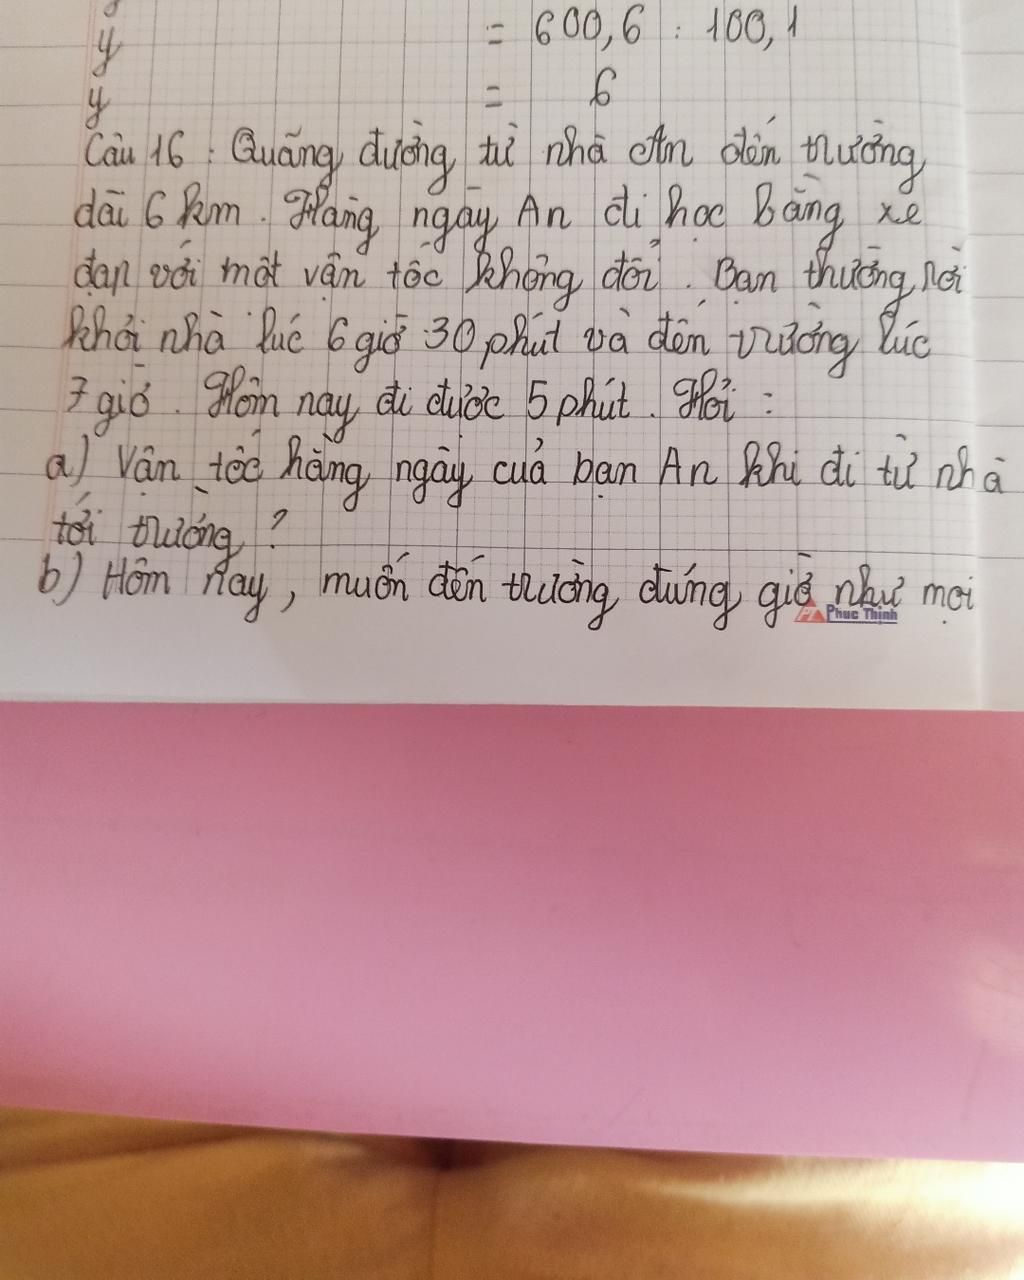 y = 600,6 : 100,1
y = 6
Câu 16 : Quãng đường từ nhà An đến trường
dài 6 km . Hàng ngày An đi học bằng xe
đạp với một vận tốc không đổi . Bạn thường rời
khỏi nhà lúc 6 giờ 30 phút và đến trường lúc
7 giờ . Hôm nay đi được 5 phút . Hỏi :
a) Vận tốc hằng ngày của bạn An khi đi từ nhà
tới trường ?
b) Hôm nay , muốn đến trường đúng giờ như mọi
Phuc Thinh